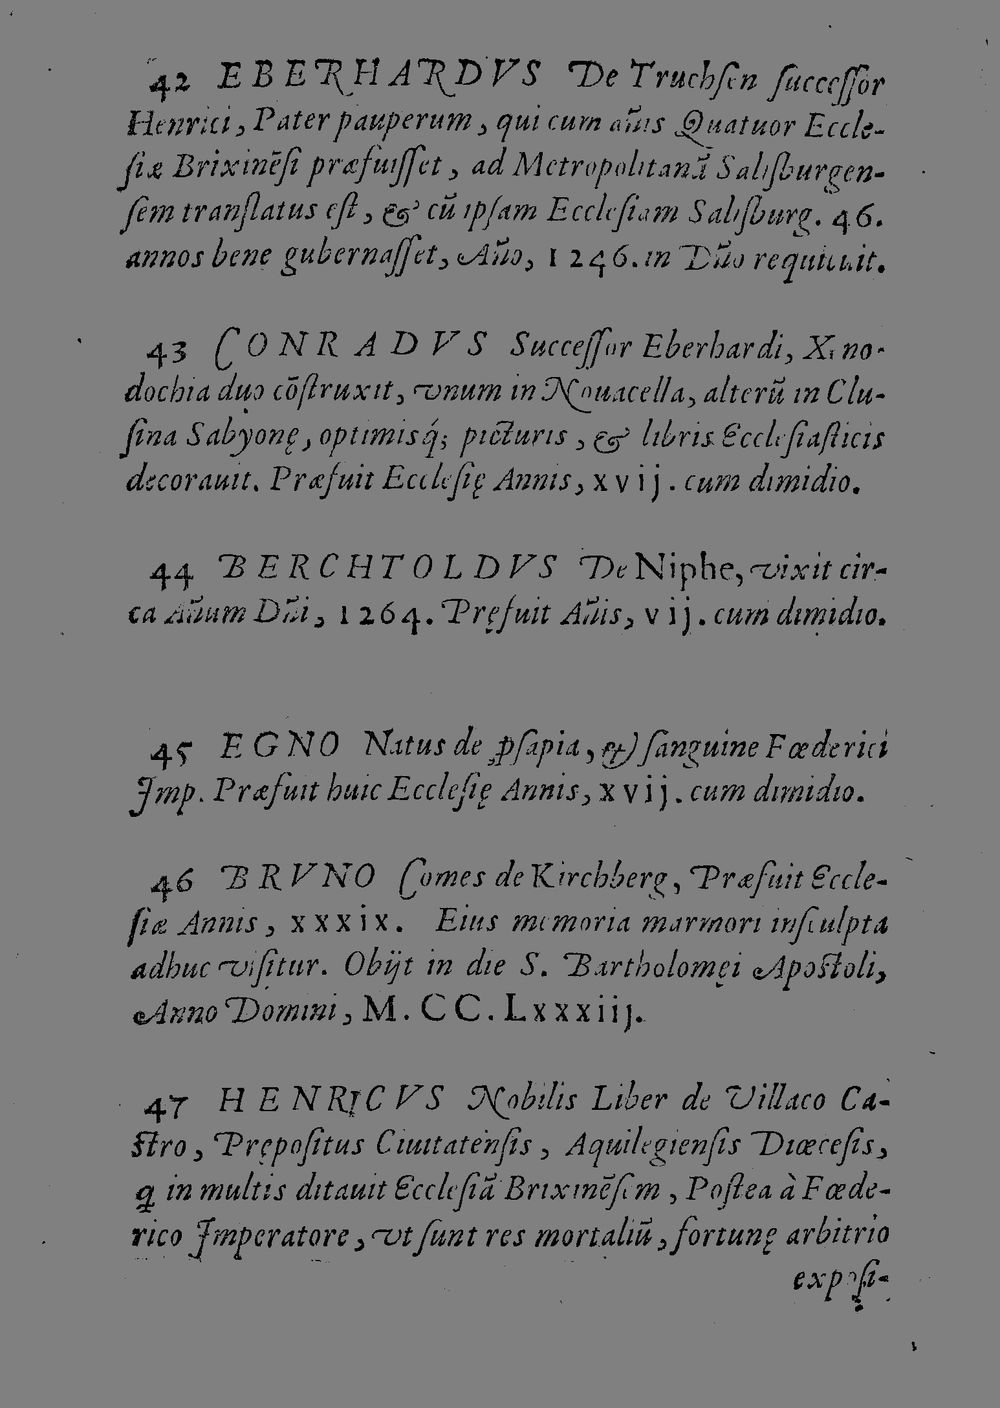 42 EBERHARDVS De Truchsen successor
Henrici, Pater pauperum, qui cum añis Quatuor Eccle-
siæ Brixinẽsi præfuisset, ad Metropolitanã Salisburgen-
sem translatus est, & cũ ipsam Ecclesiam Salisburg. 46.
annos bene gubernasset, Año, 1246. in Dño requieuit.
43 CONRADVS Successor Eberhardi, Xeno-
dochia duo cõstruxit, vnum in Nouacella, alterũ in Clu-
sina Sabyonę, optimisq́; picturis, & libris Ecclesiasticis
decorauit. Præfuit Ecclesię Annis, xvij. cum dimidio.
44 BERCHTOLDVS De Niphe, vixit cir-
ca Añum Dñi, 1264. Pręfuit Añis, vij. cum dimidio.
45 EGNO Natus de ꝓsapia, & sanguine Fœderici
Imp. Præfuit huic Ecclesię Annis, xvij. cum dimidio.
46 BRVNO Comes de Kirchberg, Præfuit Eccle-
siæ Annis, xxxix. Eius memoria marmori insculpta
adhuc visitur. Obijt in die S. Bartholomęi Apostoli,
Anno Domini, M. CC. Lxxxiij.
47 HENRICVS Nobilis Liber de Villaco Ca-
stro, Prępositus Ciuitatensis, Aquilegiensis Diœcesis,
ꝗ in multis ditauit Ecclesiã Brixinẽsem, Postea à Fœde-
rico Imperatore, vt sunt res mortaliũ, fortunę arbitrio
exposi-